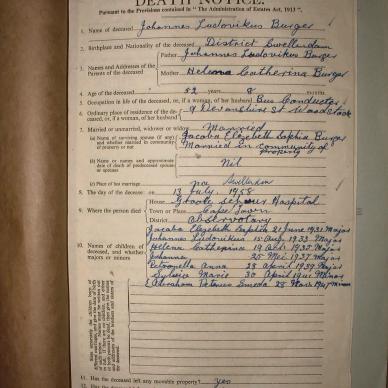 DEATH NOTICE.
Pursuant to the Provisions contained in "The Administration of Estates Act, 1913".
1. Name of deceased Johannes Ludovikus Burger
2. Birthplace and Nationality of the deceased District Swellendam
3. Names and Addresses of the Parents of the deceased
Father Johannes Ludovikus Burger
Mother Helena Catherina Burger
4. Age of the deceased 52 years 8 months
5. Occupation in life of the deceased, or, if a woman, of her husband Bus Conductor
6. Ordinary place of residence of the deceased, or, if a woman, of her husband 9 Devonshire St Woodstock
7. Married or unmarried, widower or widow Married
(a) Name of surviving spouse (if any) and whether married in community of property or not Jacoba Elizabeth Sophia Burger
Married in community of property
(b) Name or names and approximate date of death of predeceased spouse or spouses Nil
(c) Place of last marriage Swellendam
8. The day of the decease: on 13 July 1958
9. Where the person died
House Groote Schuur Hospital
Town or Place Cape Town
District Observatory
10. Names of children of deceased, and whether majors or minors
Jacoba Elizabeth Sophia 21 June 1931 Major
Johannes Ludovikus 15 Aug 1933 Major
Helena Catherina 12 Oct 1935 Major
Johanna 25 Mei 1937 Major
Petronella Anna 28 April 1939 Major
Marie 30 April Minor
Abraham Petrus 28 Mar Minor
11. Has the deceased left any movable property? yes